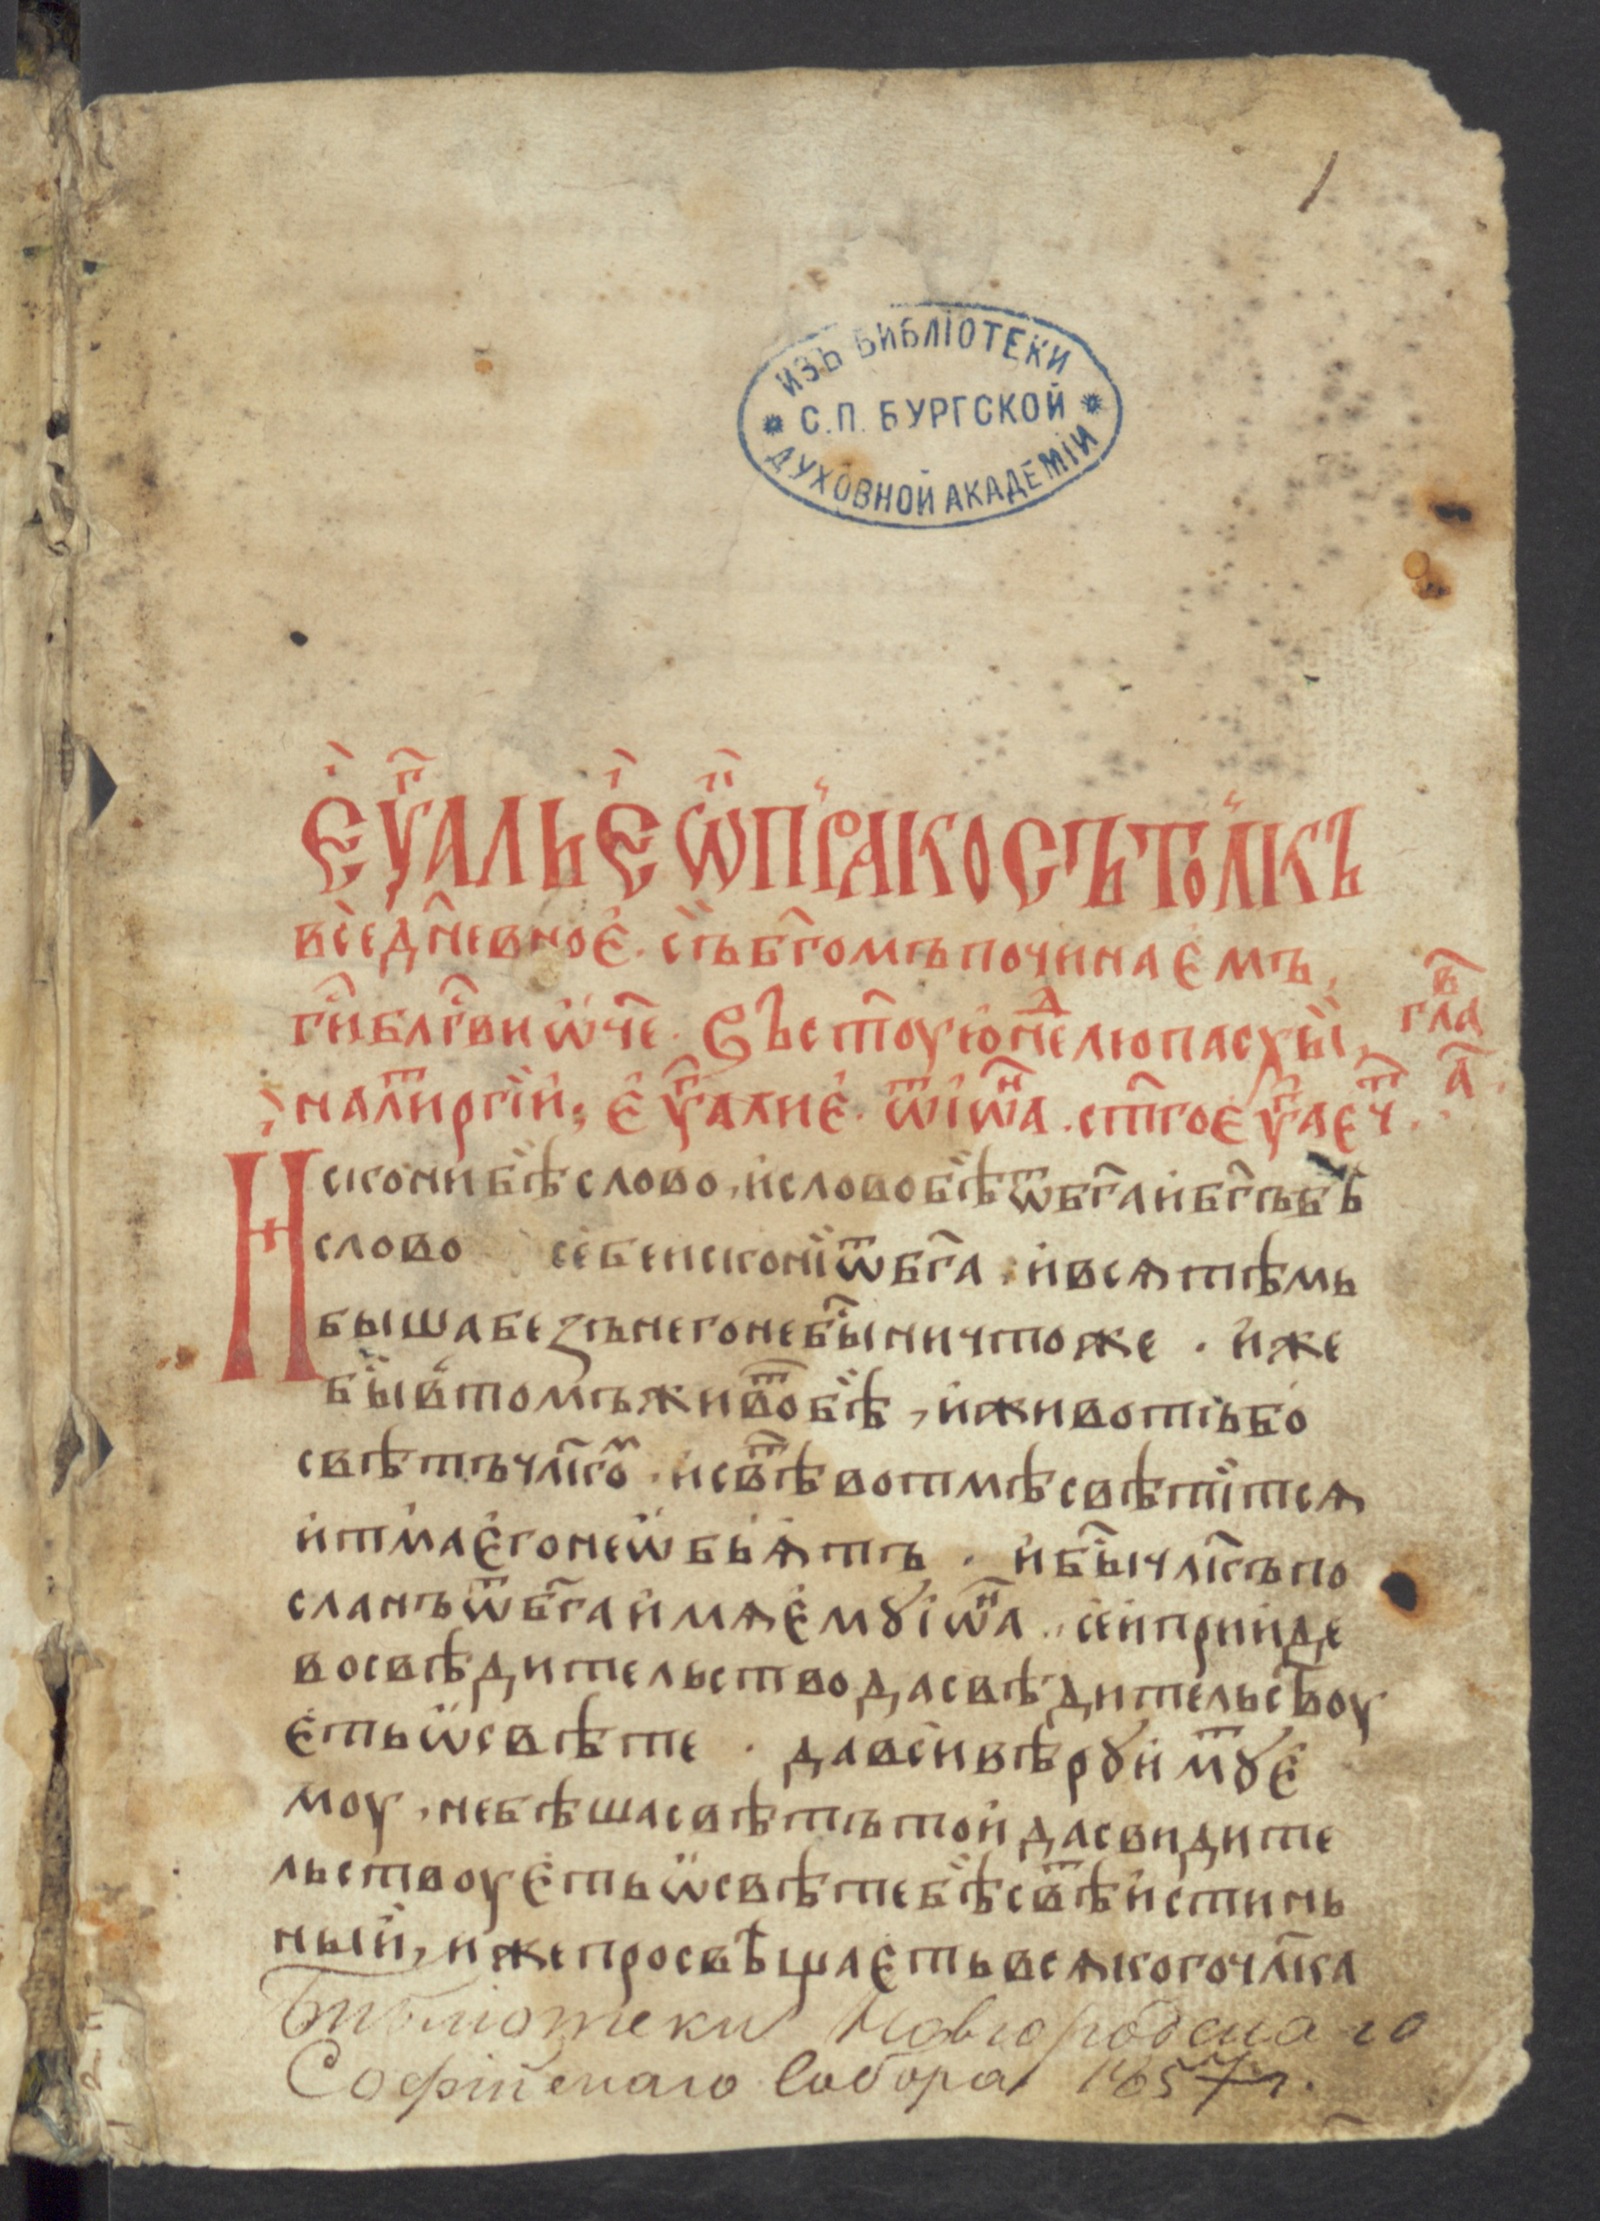 1
ИЗЪ БИБЛІОТЕКИ
С.П. БУРГСКОЙ
ДУХОВНОЙ АКАДЕМІИ
Єѵⷢ҇альє ѿ прⷶ҇ѧкосъ толкъ
все дн҃евноє. съ бг҃омъ починаємъ,
гн҃ блг҃ви ѿч҃е. Въ ст҃оую нⷣелю пасхы, гла вⷡ҇
на лиⷮргїи, єѵⷢ҇алиє. ѿ іѡⷩ҇а. ст҃го єѵⷢ҇а єⷭ҇ч. а҃.
Искони бѣ слово, и слово бѣ ѿ бг҃а и бг҃ъ бѣ
слово се бе искони ѿ бг҃а. и всѧ тѣмь
быша безъ него не бы ничтоже. иже
бы в томъ живоⷮ бѣ, и животъ бо
свѣтъ чл҃коⷨ. и свѣⷮ во тмѣ свѣтитсѧ
и тма єго не ѡбьѧтъ. и бы чл҃къ по
сланъ ѿ бг҃а имѧ ємꙋ іѡⷩ҇а. сеи прииде
во свѣдительство да свѣдительствоу
єть ѡ свѣте. да вси вѣрꙋ имꙋⷮ є
моу, не бѣ ша свѣтъ той да свидите
льствоуєть ѡ свѣте бѣ свѣⷮ истинь
ный, иже просвѣщаєть всѧкого чл҃ка
Библіотеки Новгородскаго
Софійскаго Собора 1857 г.